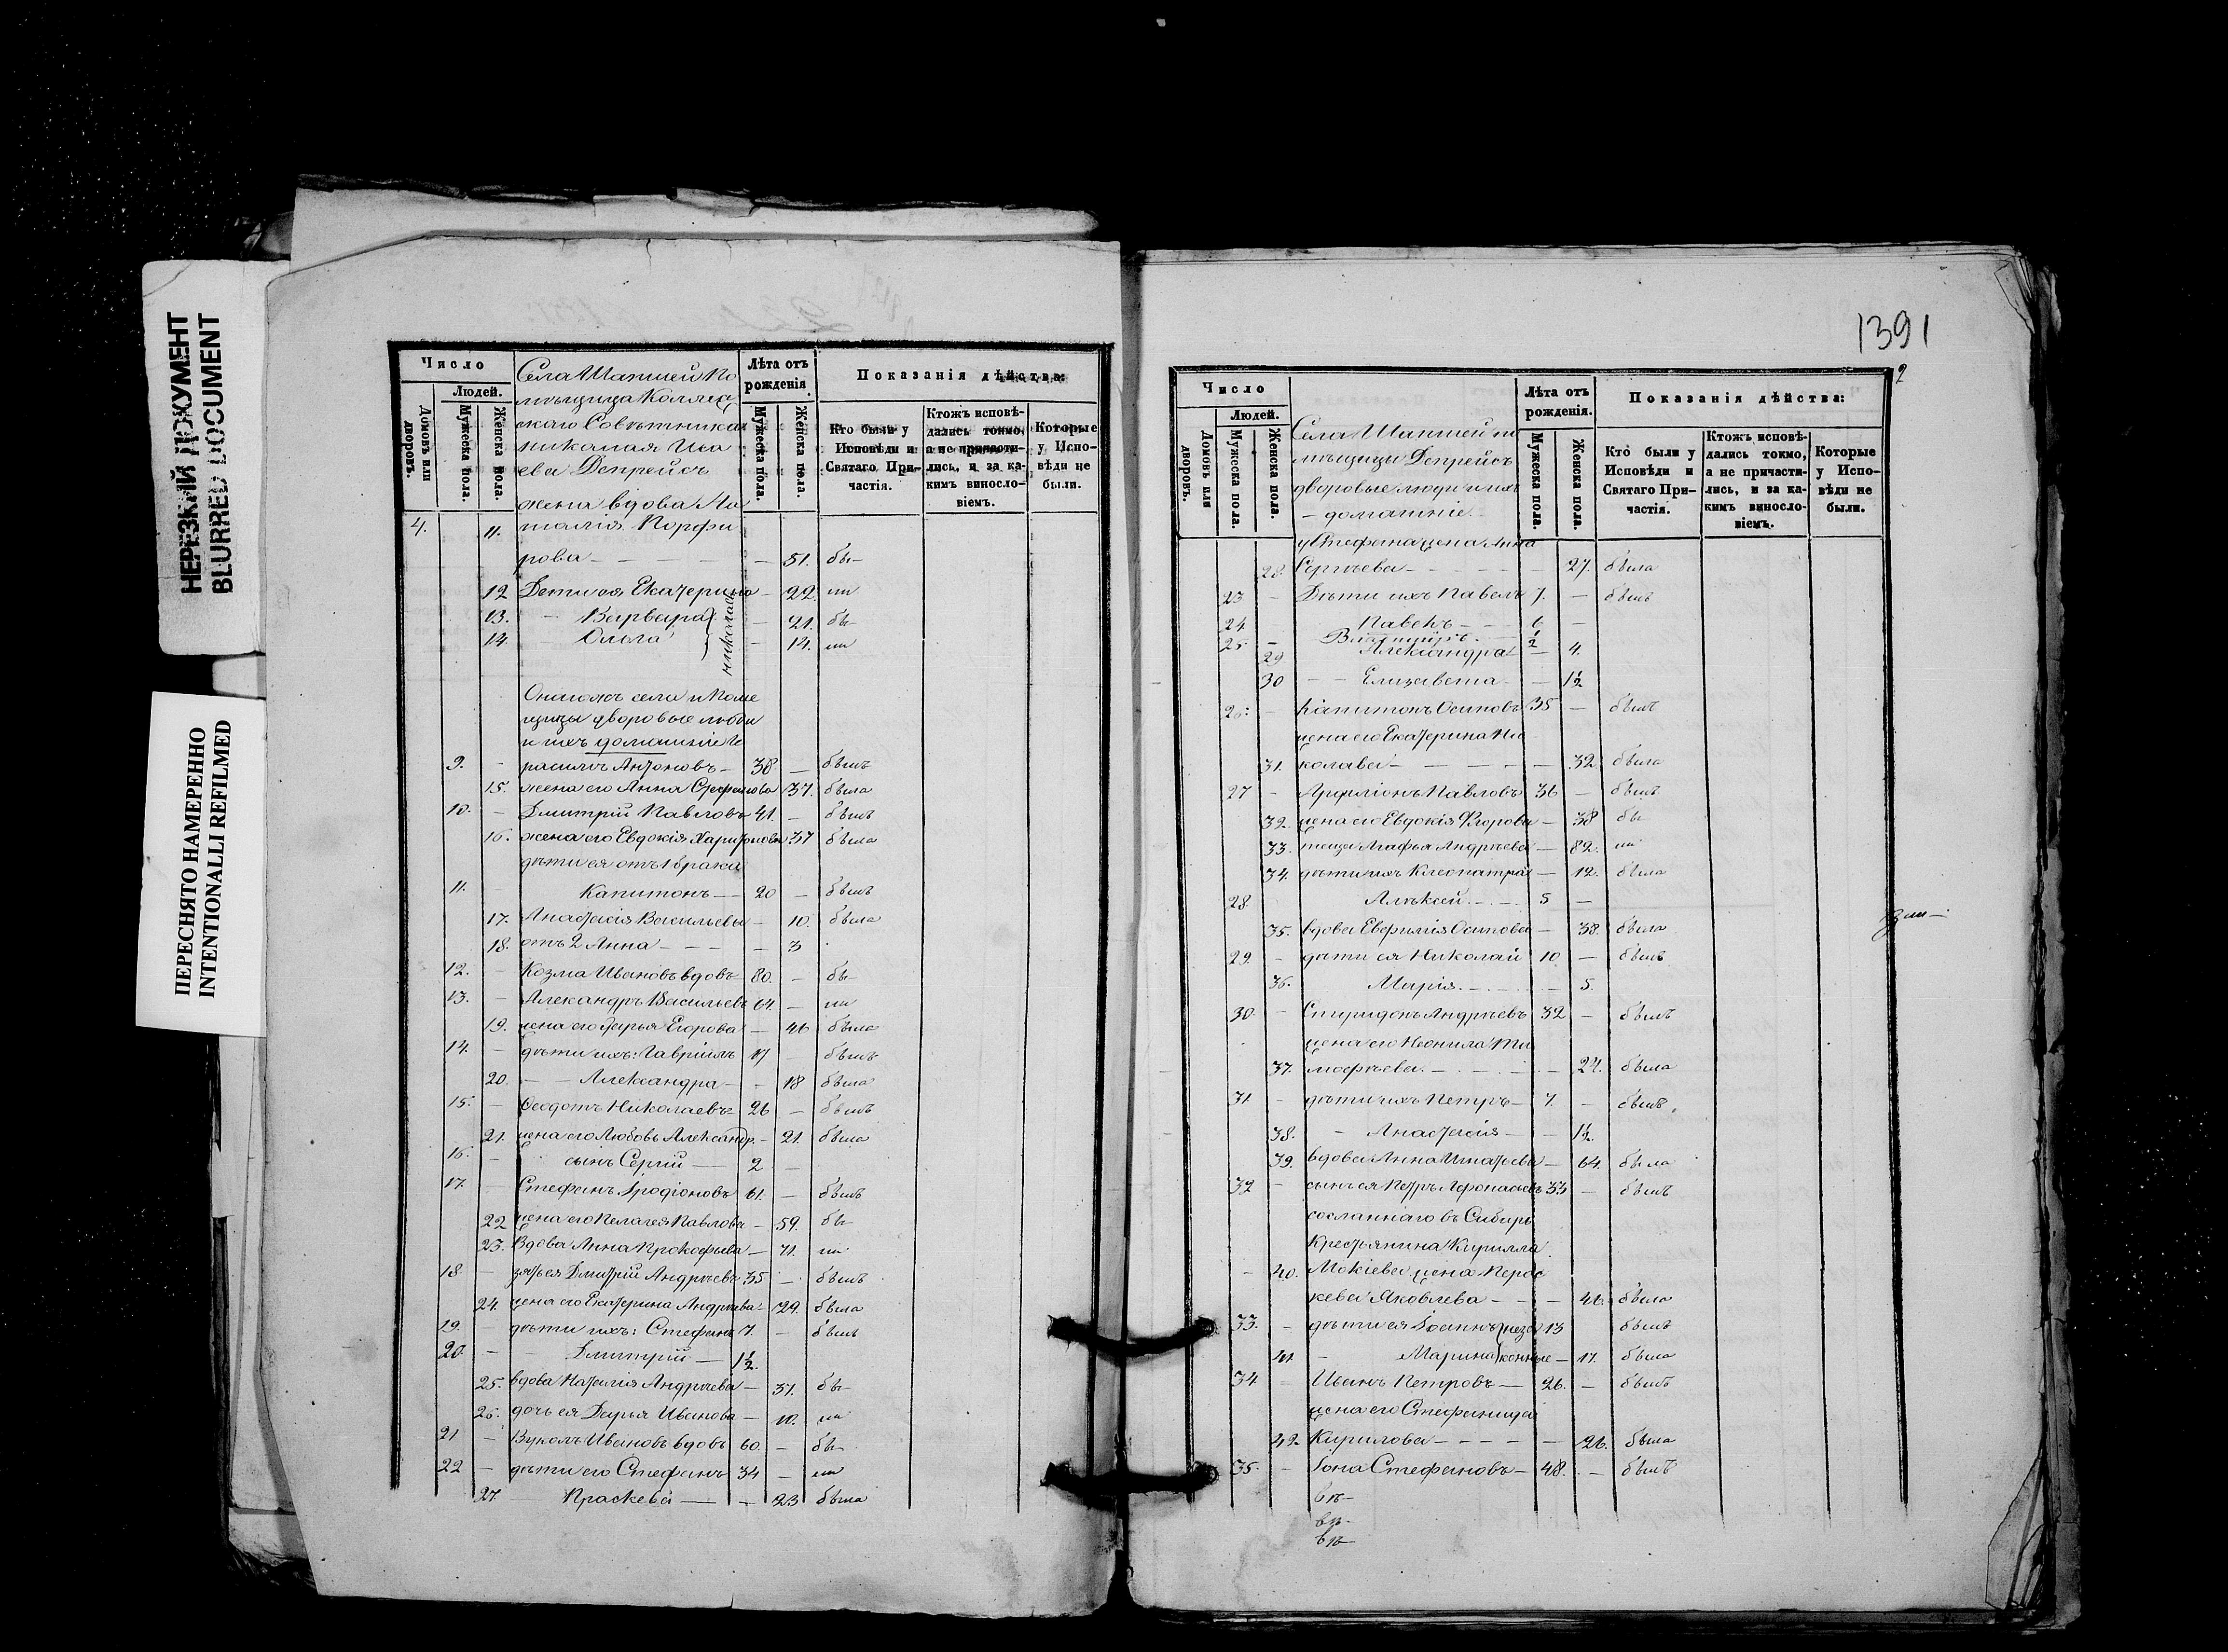 НЕРЕЗКИЙ ДОКУМЕНТ
BLURRED DOCUMENT
ПЕРЕСНЯТО НАМЕРЕННО
INTENTIONALLI REFILMED
Число
Людей.
Домовъ или дворовъ.
Мужеска пола.
Женска пола.
Села Шапшей По
мѣщица Коллеж
скаго Совѣтника
Николая Иса
ева Депрейсъ
жена вдова На
Лѣта отъ рожденія
Мужеска пола.
Женска пола.
Показанія дѣйства:
Кто были у Исповѣди и Святаго При-частія.
Ктожъ исповѣ-дались токмо, а не причасти-лись, и за ка-кимъ винносло-віемъ.
Которые у Испо-вѣди не были.
4. 11. талія Порфи
рова — 51. бы-
12 Дети ея Екатерина — 22. ли
13. — Варвара — 21. бы-
14. — Ольга — 14. ли
Николаевы
Онагожъ села и поме
щицы дворовые люди
и ихъ домашніе Ге
9. — расимъ Антоновъ — 38 — былъ
15. жена его Анна Стефанова 37. была
10. — Дмитрій Павловъ 41. — былъ
16. жена его Евдокія Харитонова 37 была
дѣти ея отъ 1 брака
11. — Капитонъ — 20 — былъ
17. Анастасія Васильевы — 10. была
18. отъ 2 Анна — — 3
12. — Козма Ивановъ вдовъ 80. — бы-
13. — Александръ Васильевъ 64. — ли
19. жена его Дарья Егорова — 46 была
14. — дѣти ихъ: Гавріилъ 17 — былъ
20. — — Александра — — 18 была
15. — Ѳеодотъ Николаевъ 26 — былъ
21. жена его Любовь Александр. — 21. была
16. — сынъ Сергій — 2 —
17. — Стефанъ Иродіоновъ 61. — былъ
22 жена его Пелагея Павлова — 59. бы-
23. Вдова Анна Прокофьева — 71. ли
18 — зять ея Дмитрій Андреевъ 35 — былъ
24. жена его Екатерина Андреева — 29. была
19. — дѣти ихъ: Стефанъ 7. — былъ
20. — — Дмитрій — 1½.
25. вдова Наталія Андреева — 37. бы-
26. дочь ея Дарья Иванова — 10. ли
21 — Вуколъ Ивановъ вдовъ 60. — бы-
22 — дѣти его Стефанъ 34 — ли
27. Праскева — — 23 была
1391
2
Число
Людей.
Домовъ или дворовъ.
Мужеска пола.
Женска пола.
Села Шапшей по
мѣщицы Депрейсъ
дворовые люди и ихъ
— домашніе.
Лѣта отъ рожденія.
Мужеска пола.
Женска пола.
Показанія дѣйства:
Кто были у Исповѣди и Святаго При-частія.
Ктожъ исповѣ-дались токмо, а не причасти-лись, и за ка-кимъ винносло-віемъ.
Которые у Испо-вѣди не были.
у Стефана жена Анна
28. Сергѣева — 27. была
23 — Дѣти ихъ Павелъ 7. — былъ
24. Павелъ — 6 —
25. — ½
29 Александра — 4.
30 — — Елизавета — 1½
26. — Капитонъ Осиповъ 35 — былъ
жена его Екатерина Ни
31. колаева — 32 была
27 — Павловъ 36 — былъ
32. жена его Евдокія Ѳедорова — 38 бы-
33. теща Агафья Андреева — 82. ли
34. дѣти ихъ Клеопатра — 12. была
28. Алексѣй — 5 —
35. вдова Евфимія Осипова — 38. была
29. — дѣти ея Николай 10 — былъ
36. Марія — 5.
30. — Спиридонъ Андреевъ 32 — былъ
жена его Неонила Ти
37. мофѣева — 24. была
31. — дѣти ихъ Петръ — 7. — былъ
38. — Анастасія — — 1½.
39. вдова Анна Игнатьева — 64. была
32 — сынъ ея Петръ Афонасьевъ 33 — былъ
сосланнаго въ Сибирь
Крестьянина Кирилла
— 40. Мокіева жена Перас
кева Яковлева — 46. была
33. — дѣти ея Іоаннъ незо 13 былъ
41 — Марина конные — 17. была
34 — Иванъ Петровъ — 26. — былъ
жена его Стефанида
42. Кирилова — 26. была
35. — Іона Стефановъ — 48. — былъ